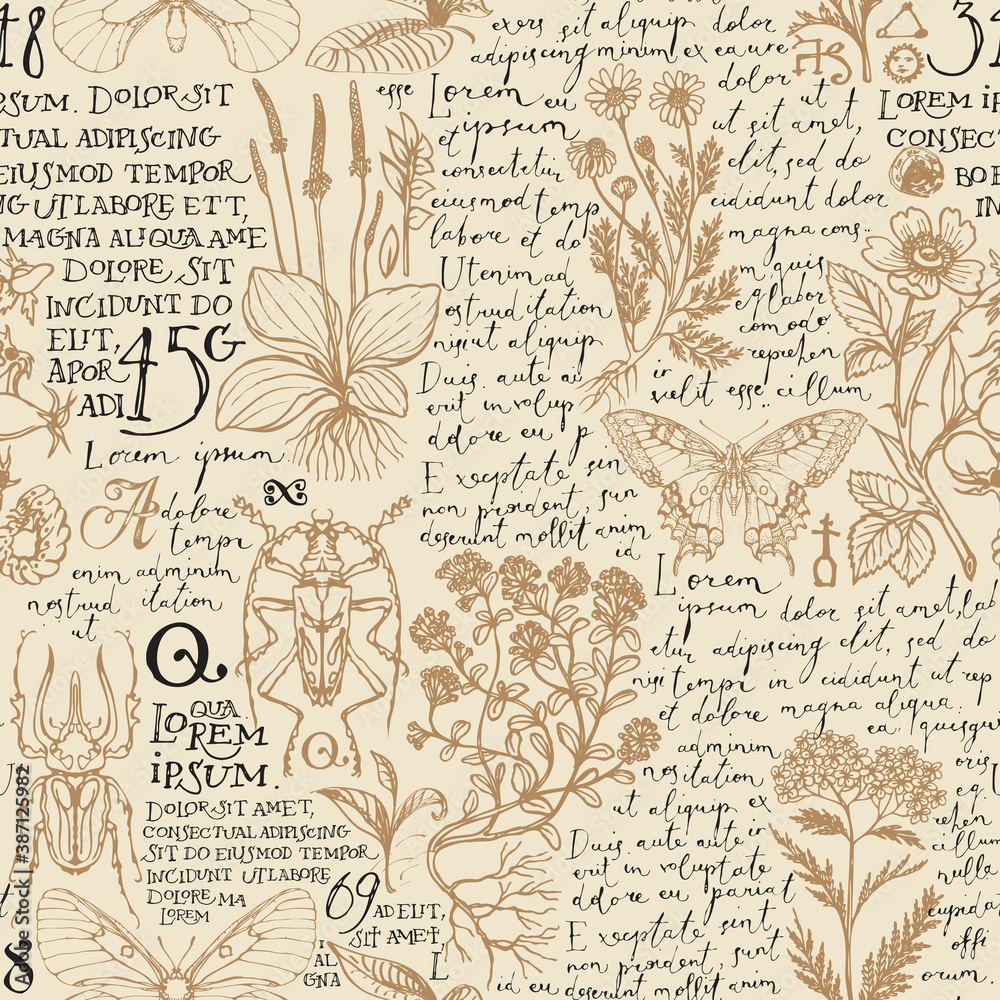 48
PSUM. DOLOR SIT
TUAL ADIPISCING
EIUSMOD TEMPOR
NG UT LABORE ETT,
MAGNA ALIQUA AME
DOLORE SIT
INCIDUNT DO
ELIT,
APOR
45G
ADI
Lorem ipsum.
A
dolore
tempr
enim adminim
nostrud itation
ut
Q
QUA
LOREM
IPSUM.
DOLOR SIT AMET,
CONSECTUAL ADIPISCING
SIT DO EIUSMOD TEMPOR
INCIDUNT UTLABORE
DOLORE MA
LOREM
Q
69
AD ELIT,
SIT AMET,
L
I
AL
GNA
exers sit aliquip dolor
adipiscing minim ex ea ure
esse
Lorem eu
et ipsum
consectetur
eiusmod temp
labore et do
Utenim ad
ostrud itation
nisi ut aliquip
Duis aute ai
erit in volup
dolore eu p
Exceptate sin
non proident, sun
deserunt mollit anim
id
dolor ut t
ut sit amet,
elit, sed do
cididunt dolor
magna cons..
m, quis
eq labor
comodo
reprehen
ir
velit esse cillum
34
LOREM IP
CONSECT
BO E
IN
Lorem
ipsum dolor sit amet, lab
etur adipiscing elit, sed do
nisi tempi in cididunt ut rep
et dolore magna aliqua.
ea, quisgu
adminim
nositation
ut aliquip ex
Duis aute aute ir
erit in voluptate velit
dolore eu pariat
Exceptate sint
non proident, sunt
id eu deserunt mollit anim
oris
eq. U
rehen
cillum
nulla
cupida
offi
orum.
Adobe Stock | #387125982